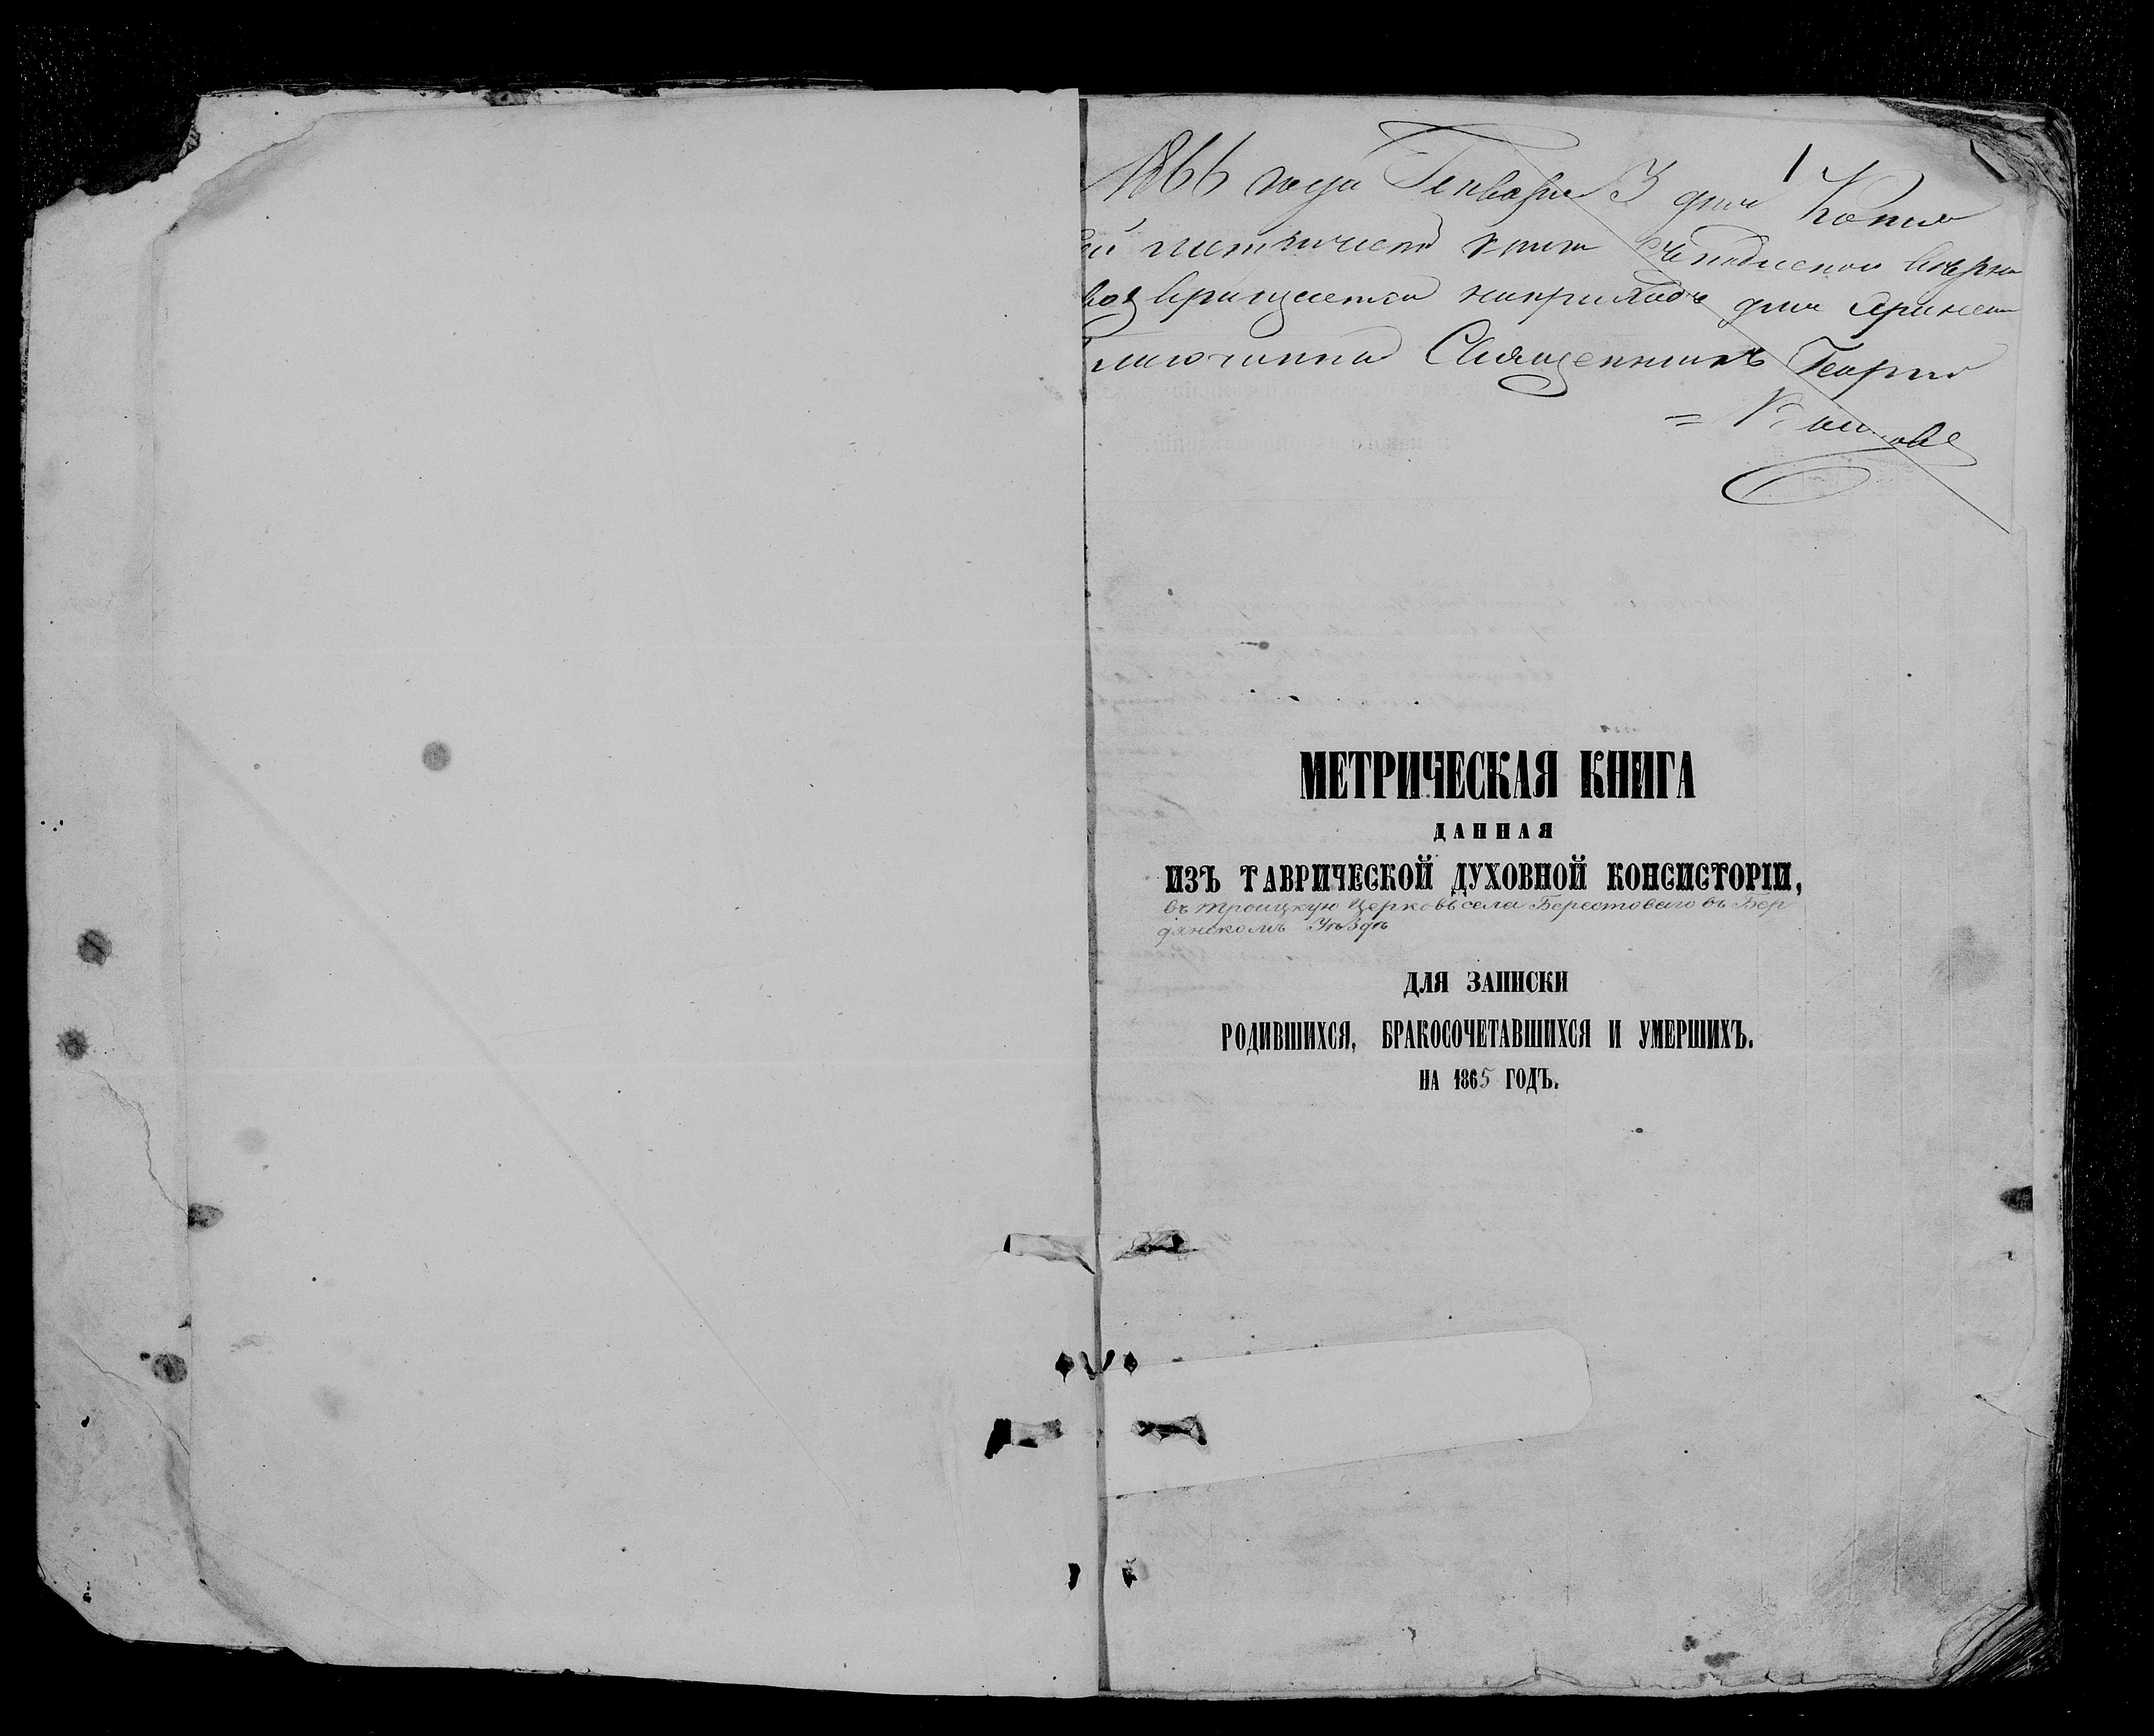 1866 года Генваря 3 дня Копія
возвращается
Священникъ Георгій
МЕТРИЧЕСКАЯ КНИГА
ДАННАЯ
ИЗЪ ТАВРИЧЕСКОЙ ДУХОВНОЙ КОНСИСТОРІИ,
въ Троицкую Церковь села Берестоваго въ Бер
дянскомъ Уѣздѣ
ДЛЯ ЗАПИСКИ
РОДИВШИХСЯ, БРАКОСОЧЕТАВШИХСЯ И УМЕРШИХЪ.
НА 1865 ГОДЪ.